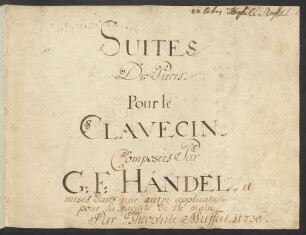 ex libris Theophili Muffat
SUITES
De Pièces
Pour le
CLAVECIN
Composées Par
G. F. HANDEL et
mises dans une autre applicature
pour la facilité de la main
Par Theophile Muffat. 1736